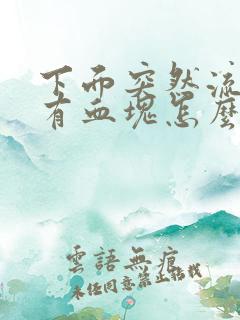 下面突然流
有血塊怎麼
雲語無痕
未经同意禁止转载